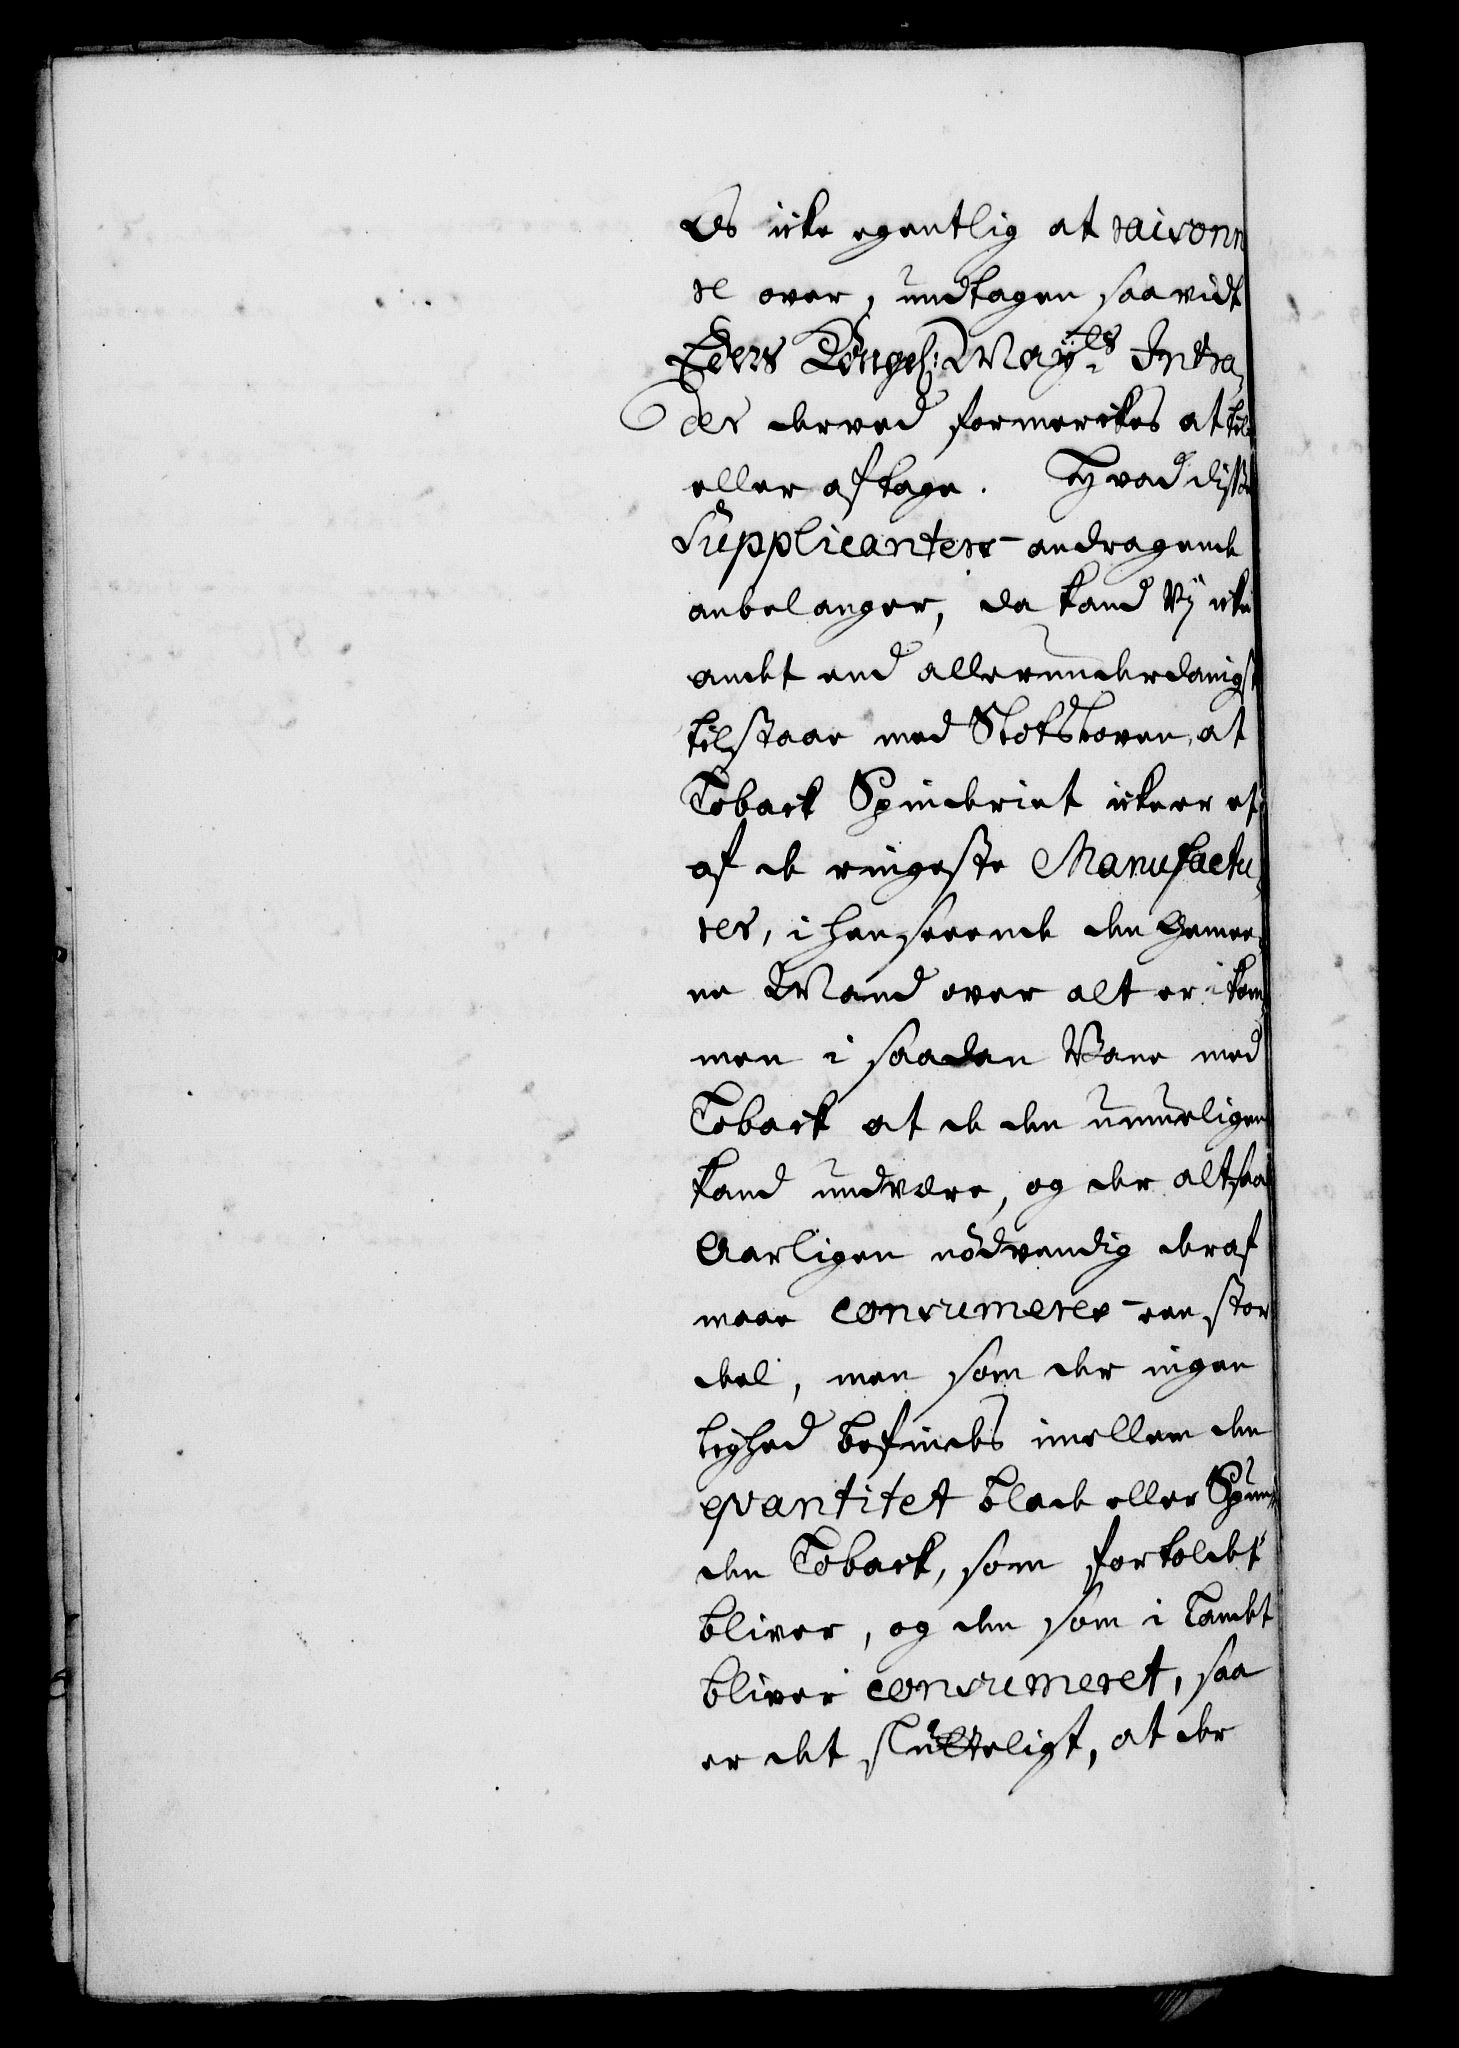 Os icke egentlig at raisonn
re over, undtagen saavidt
Eders Kongel: May:ts Intra,
der derved formerckes at til
eller aftage. Hvad disse
Supplicanters andragende
anbelanger, da kand Vij icke
andet end allerunderdanigst
tilstaae med Slotsloven, at
Toback Spinderiet icke er et
af de ringeste Manufactu,
rer, i henseende den gemee,
ne Mand over alt er i kom,
men i saadan Vane med
Toback at de den umueligen
kand undvære, og der altsaa
Aarligen nødvendig deraf
maae consumeres een stor
deel, men som der ingen
lighed befindes imellem den
qvantitet blade eller Spun,
den Toback, som fortoldet
bliver, og den som i Landet
bliver consumeret, saa
er det slutteligt, at der